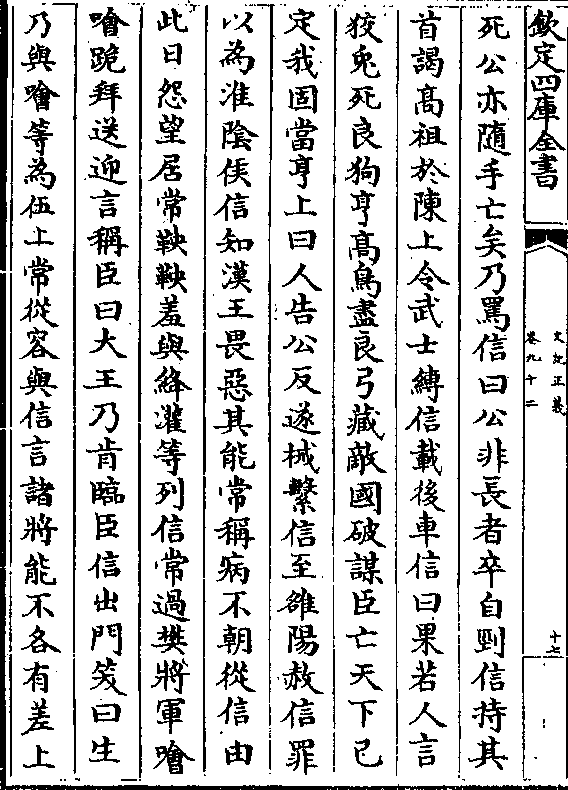 欽定四庫全書
史記正義
卷九十二
十七
死公亦隨手亡矣乃罵信曰公非長者卒自剄信持其
首謁髙祖於陳上令武士縛信載後車信曰果若人言
狡兎死良狗亨髙鳥盡良弓藏敵國破謀臣亡天下已
定我固當亨上曰人告公反遂械繫信至雒陽赦信罪
以為淮陰侯信知漢王畏惡其能常稱病不朝從信由
此日怨望居常鞅鞅羞與絳灌等列信常過樊將軍噲
噲跪拜送迎言稱臣曰大王乃肯臨臣信出門笑曰生
乃與噲等為伍上常從容與信言諸將能不各有差上